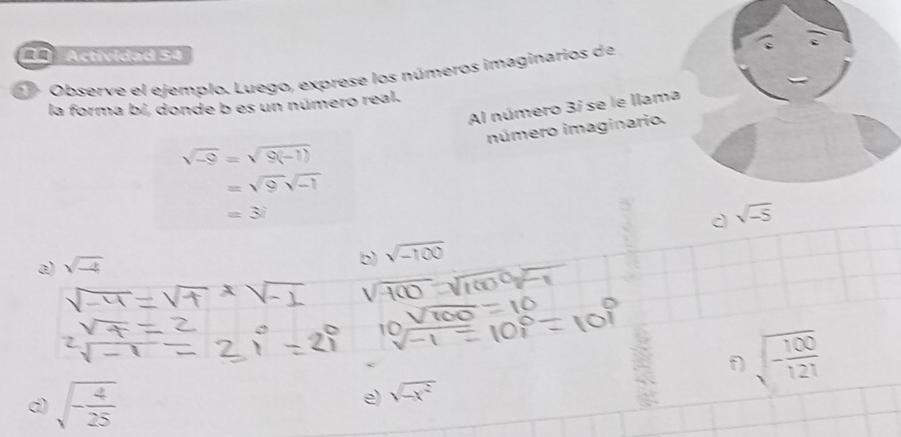 Actividad 54
1 Observe el ejemplo. Luego, exprese los números imaginarios de
la forma bi, donde b es un número real.
Al número 3i se le llama
número imaginario.
√-9 = √9(-1)
= √9 √-1
= 3i
a) √-4
b) √-100
c) √-5
√-4 = √4 * √-1
√4 = 2
2√-1 = 2i = 2i
√100 = 10
10√-1 = 10i = 10i
d) √-4/25
e) √-x²
f) √-100/121